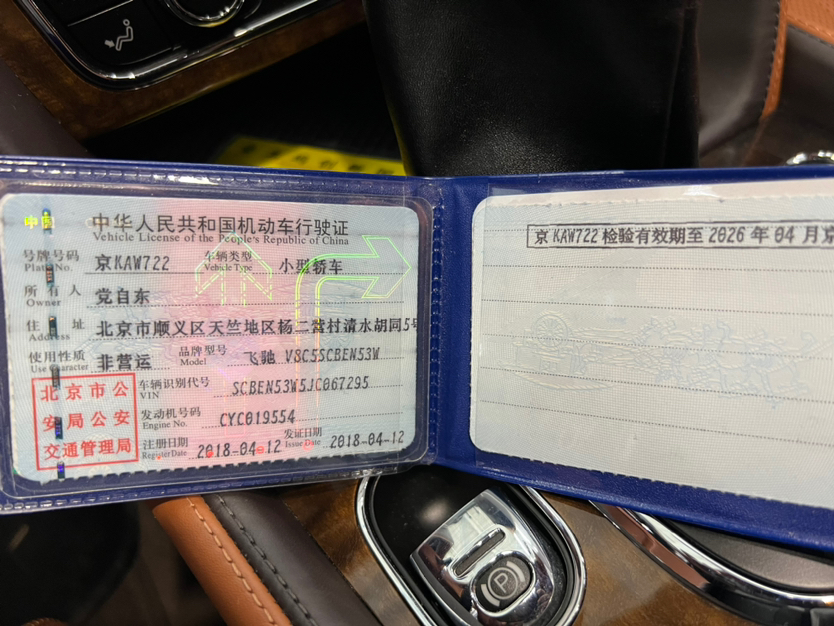 中国
中华人民共和国机动车行驶证
Vehicle License of the People's Republic of China
号牌号码 京KAW722 车辆类型 小型轿车
Plate No. Vehicle Type
所有人 党自东
Owner
住址 北京市顺义区天竺地区杨二营村清水胡同5号
Address
使用性质 非营运 品牌型号 飞驰 V8C5SCBEN53W
Use Character Model
北京市公安局公安交通管理局
车辆识别代号 SCBEN53W5JC067295
VIN
发动机号码 CYC019554
Engine No.
注册日期 2018-04-12 发证日期 2018-04-12
Register Date Issue Date
京KAW722检验有效期至2026年04月京
P